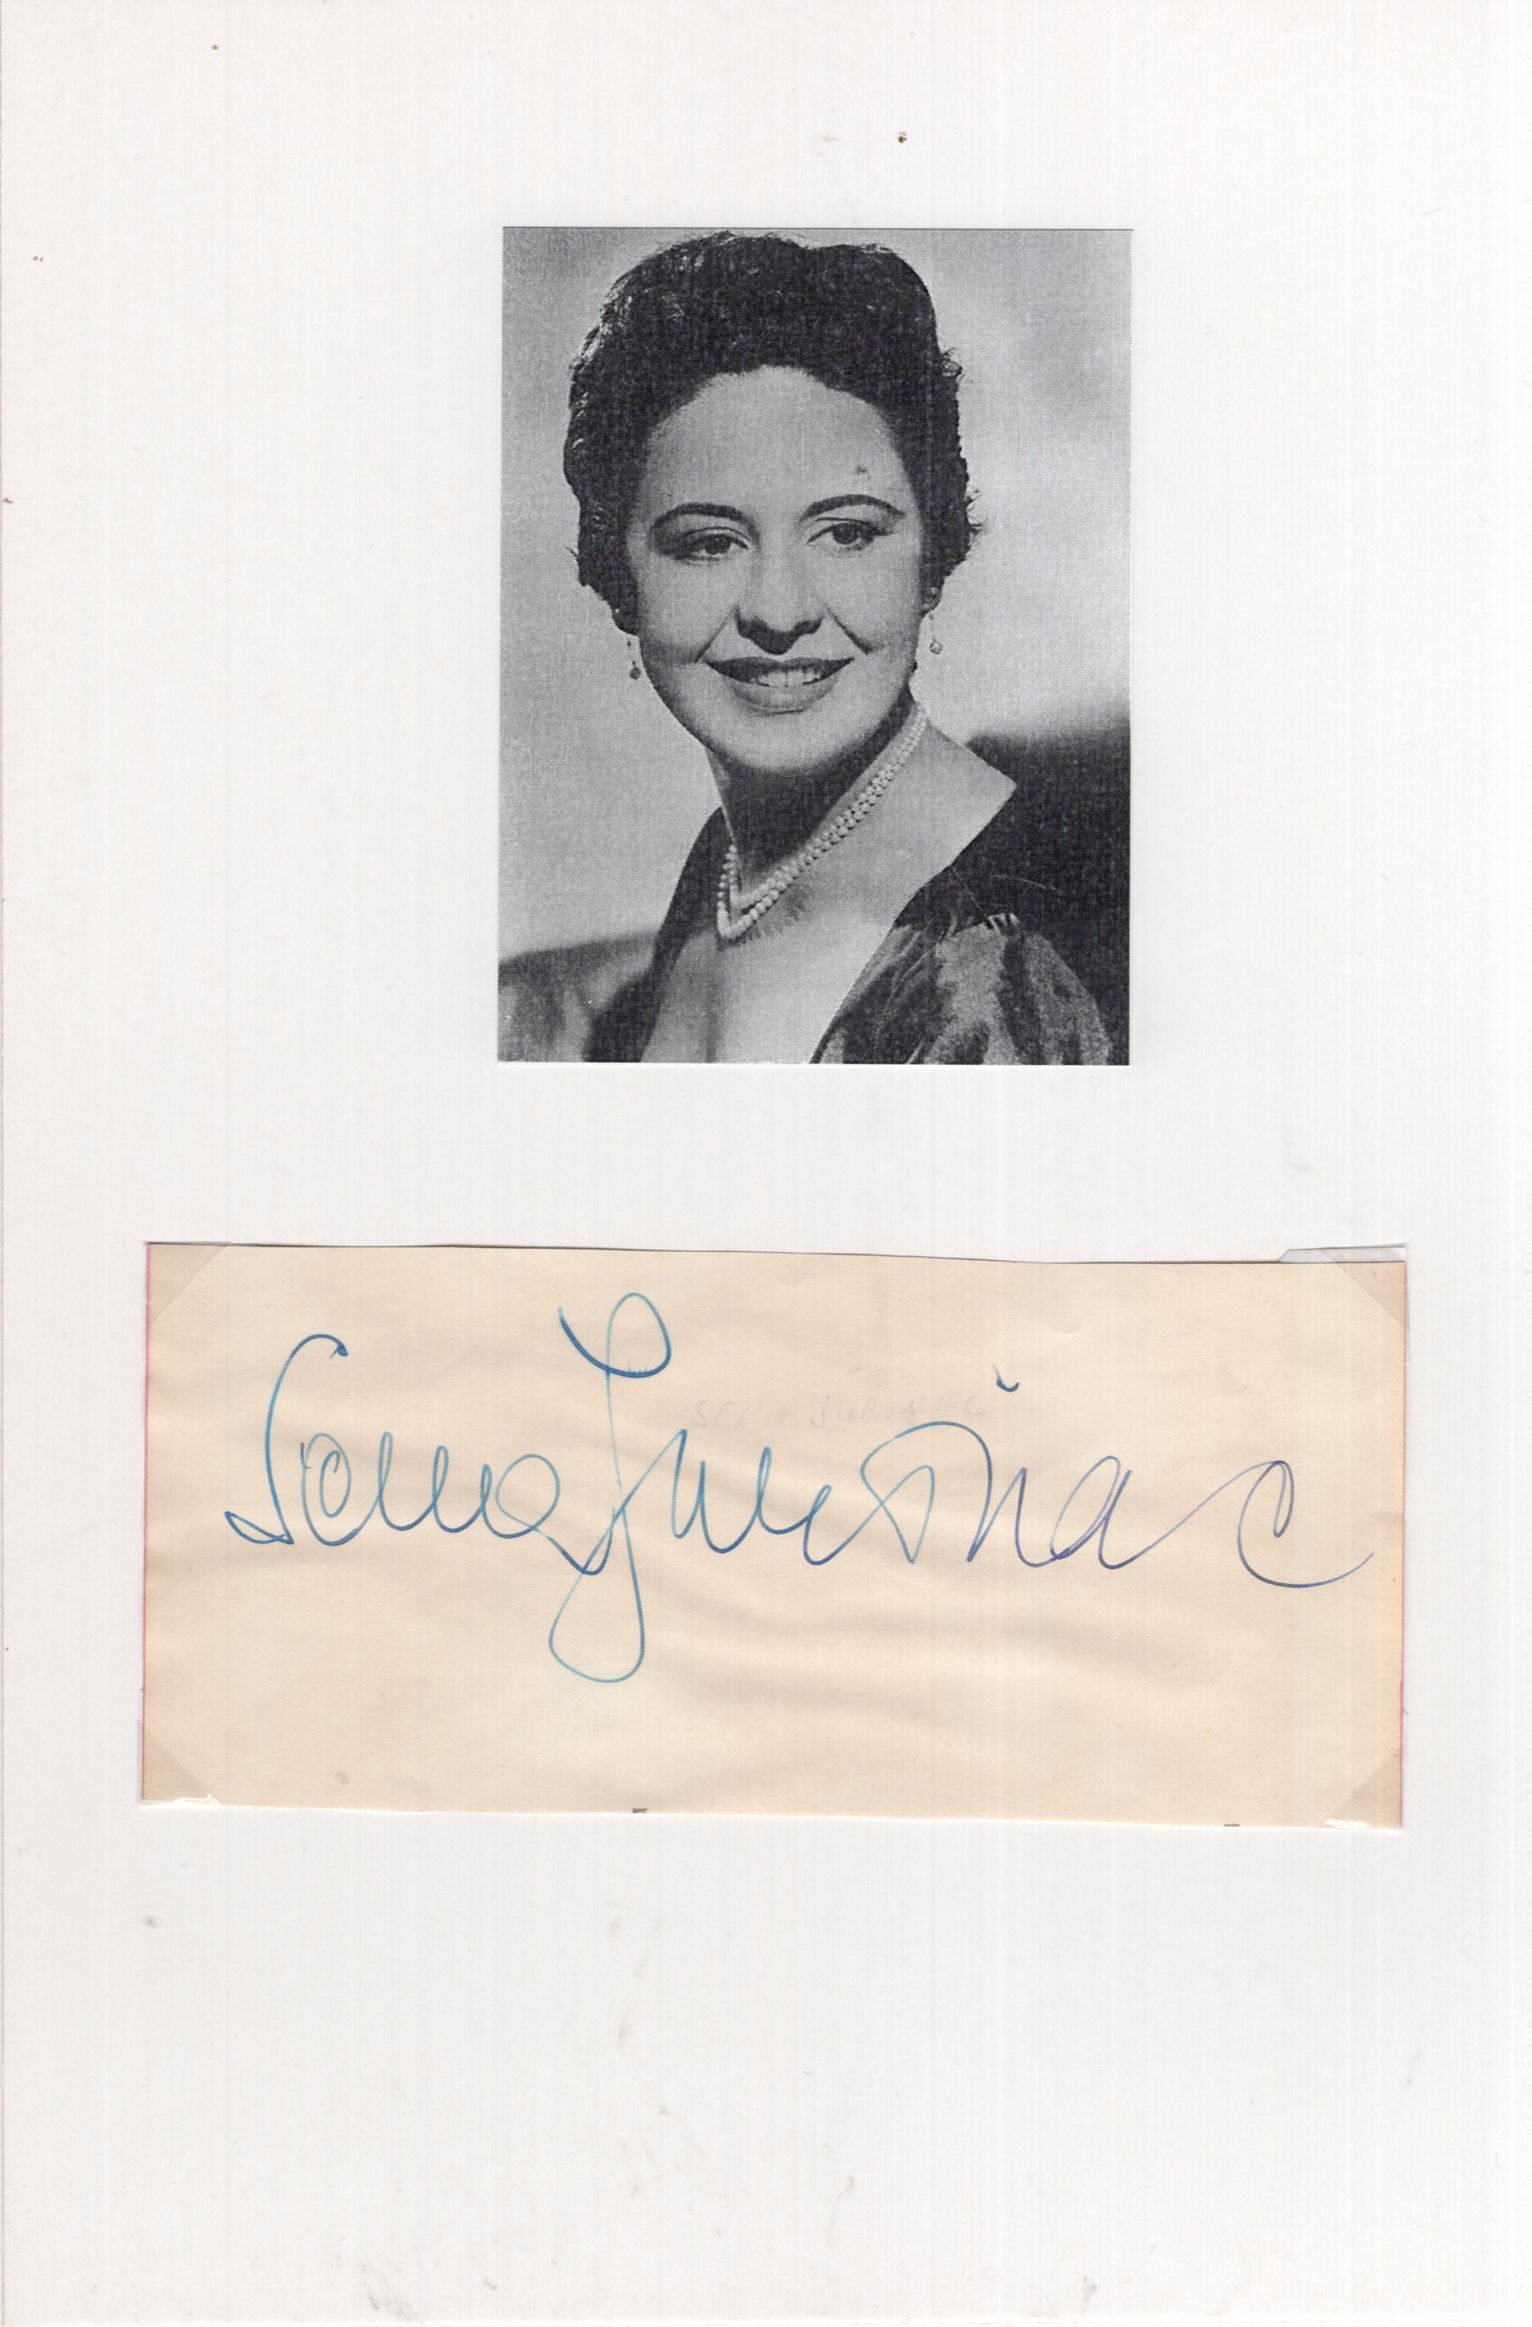 Sena Jurinac
SENA JURINAC